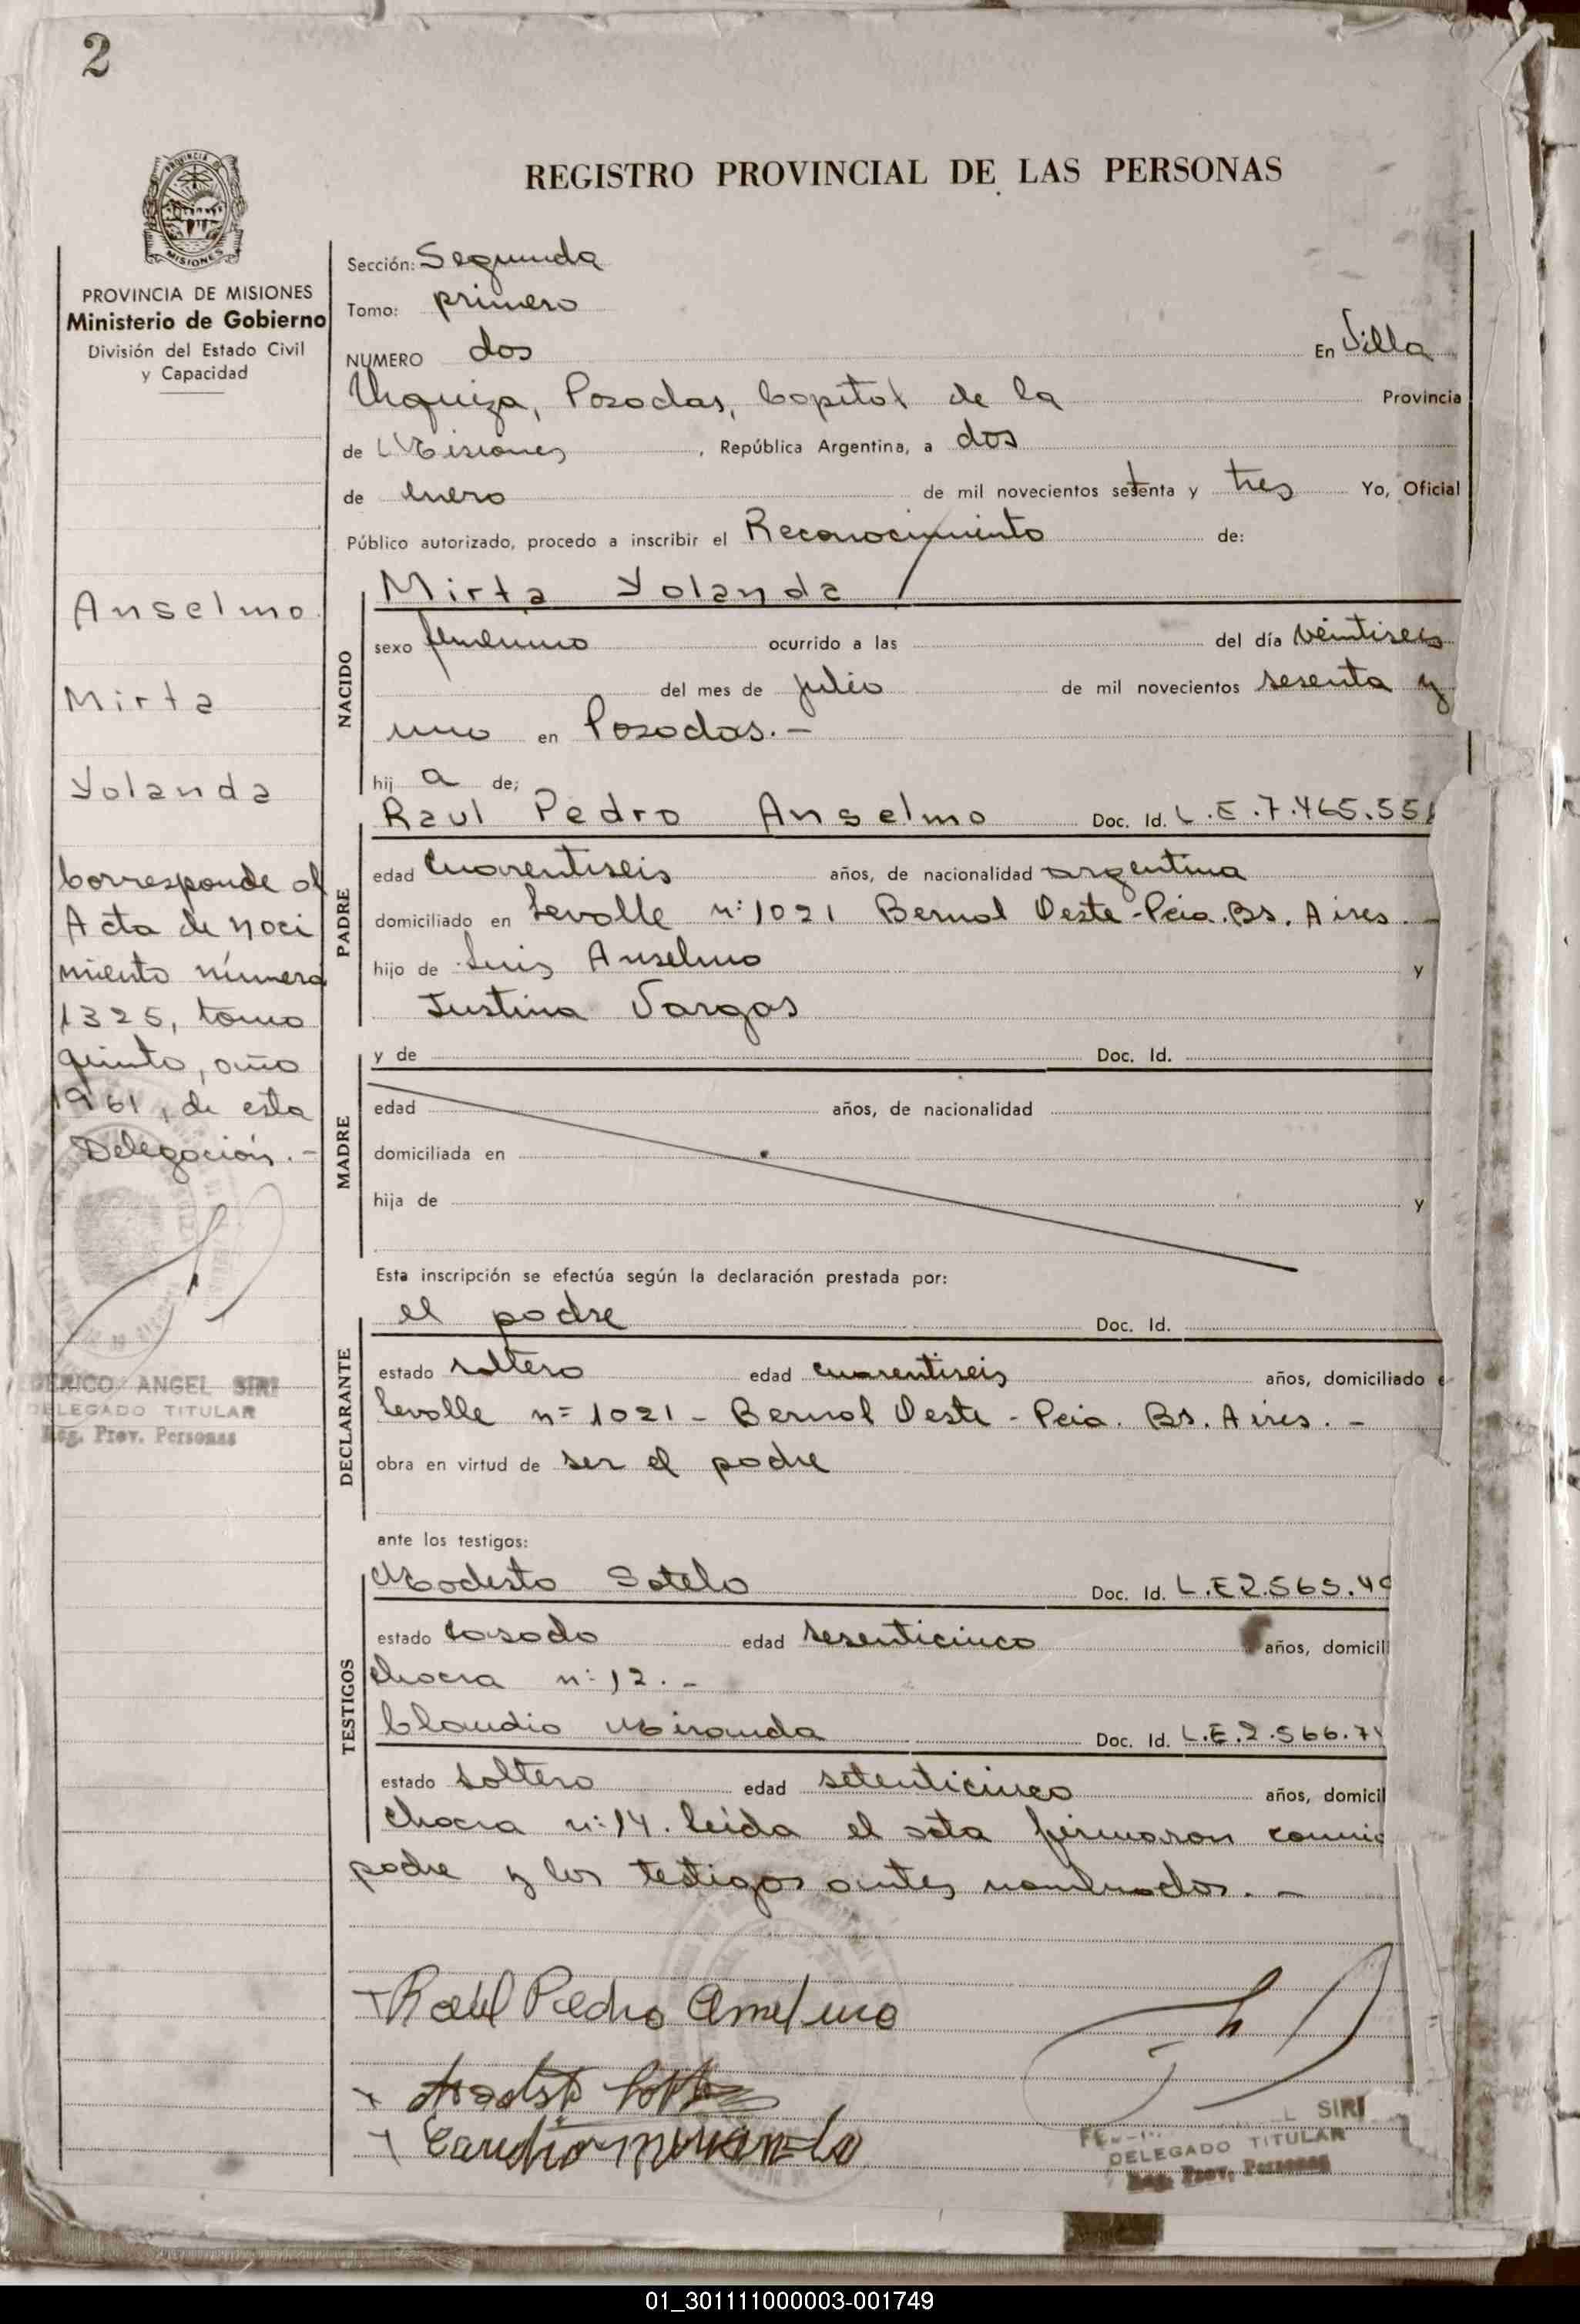 2
REGISTRO PROVINCIAL DE LAS PERSONAS
PROVINCIA DE
MISIONES
PROVINCIA DE MISIONES
Ministerio de Gobierno
División del Estado Civil
y Capacidad
Anselmo
Mirta
Yolanda
Corresponde al
Acta de naci
miento número
1325, tomo
quinto, año
1961, de esta
Delegación.-
ANGEL SIRI
DELEGADO TITULAR
Reg. Prov. Personas
Sección: Segunda
Tomo: primero
NUMERO dos En Villa
Urquiza, Posadas, Capital de la Provincia
de Misiones, República Argentina, a dos
de enero de mil novecientos setenta y tres Yo, Oficial
Público autorizado, procedo a inscribir el Reconocimiento de:
Mirta Yolanda
NACIDO
sexo femenino ocurrido a las del día veintiseis
del mes de julio de mil novecientos sesenta y
uno en Posadas.-
hij a de;
Raul Pedro Anselmo Doc. Id. L.E.7.465.55
PADRE
edad cuarentiseis años, de nacionalidad argentina
domiciliado en Levalle n: 1021 Bernal Oeste-Pcia. Bs. Aires.-
hijo de Luis Anselmo y
Justina Vargas
MADRE
y de Doc. Id.
edad años, de nacionalidad
domiciliada en
hija de y
Esta inscripción se efectúa según la declaración prestada por:
el padre Doc. Id.
DECLARANTE
estado soltero edad cuarentiseis años, domiciliado e
Levalle n= 1021 - Bernal Oeste - Pcia. Bs. Aires.-
obra en virtud de ser el padre
ante los testigos:
TESTIGOS
Modesto Sotelo Doc. Id. L.E 2.565.4
estado casado edad sesenticinco años, domicil
chacra n: 12.-
Claudio Miranda Doc. Id. L.E.2.566.7
estado soltero edad setenticinco años, domicil
chacra n: 14. leída el acta firmaron
padre y los testigos antes nombrados.-
Raúl Pedro Anselmo
SIRI
DELEGADO TITULAR
Reg. Prov. Personas
01_301111000003-001749